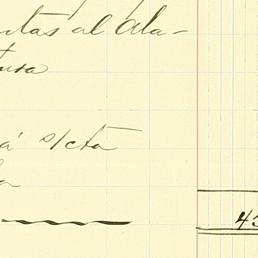 ntas al Ala-
tura
á s/cta
a
43